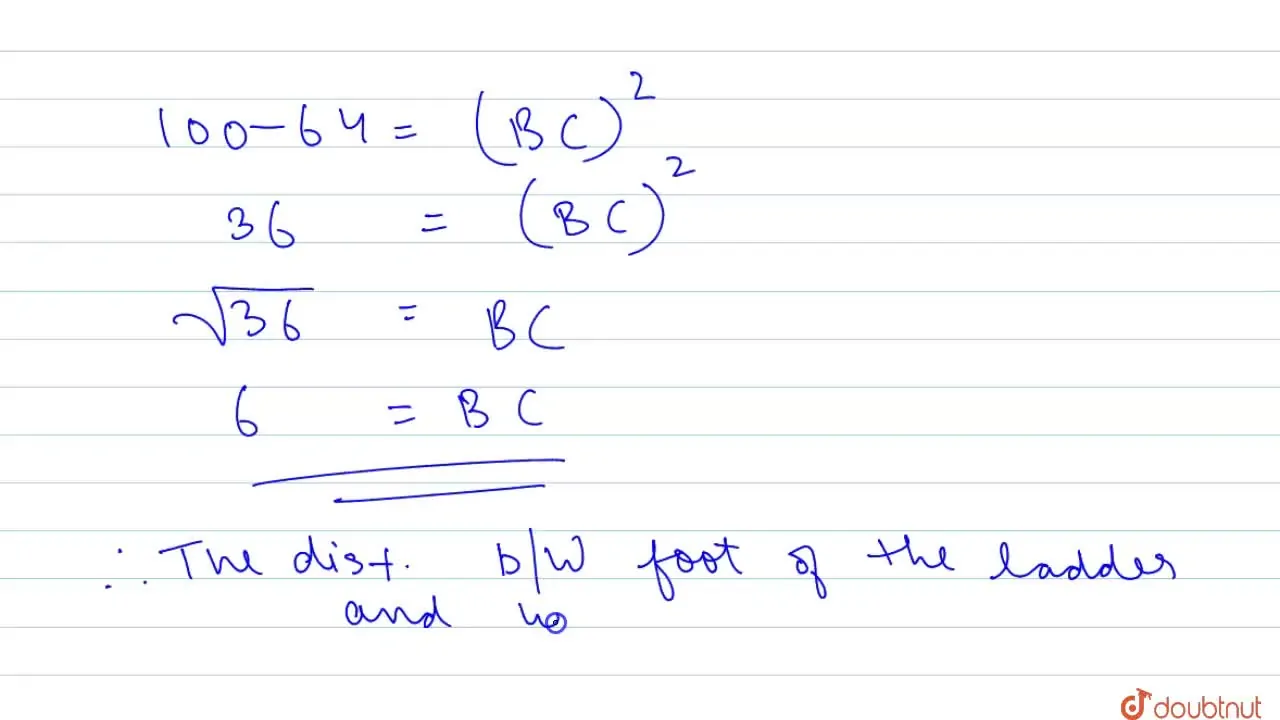 100-64 = (BC)²
36 = (BC)²
√36 = BC
6 = BC
∴ The dist. b/w foot of the ladder
and
doubtnut